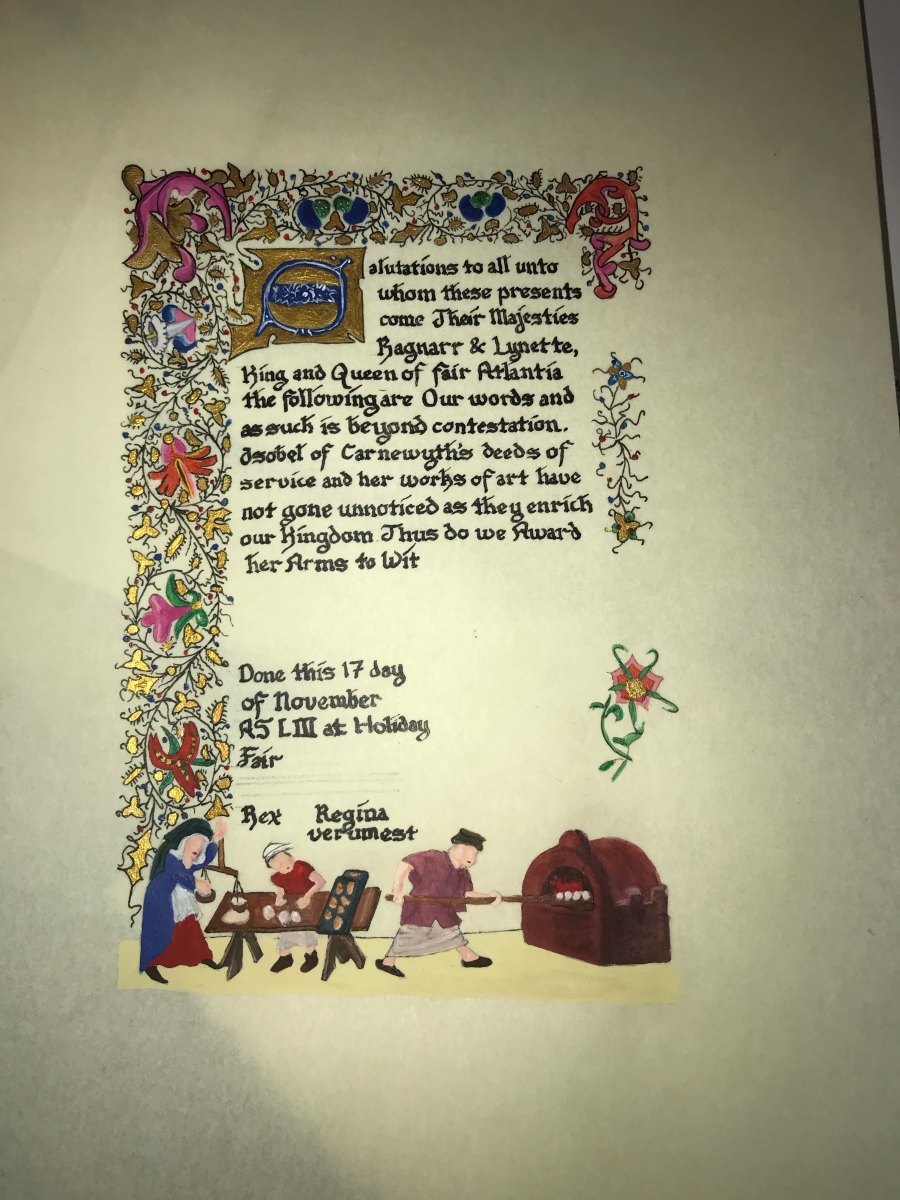 Salutations to all unto
whom these presents
come Their Majesties
Ragnarr & Lynette,
King and Queen of fair Atlantia
the following are Our words and
as such is beyond contestation.
Isobel of Carnewyth's deeds of
service and her works of art have
not gone unnoticed as they enrich
our Kingdom Thus do we Award
her Arms to Wit
Done this 17 day
of November
AS LIII at Holiday
Fair
Rex Regina
verumest